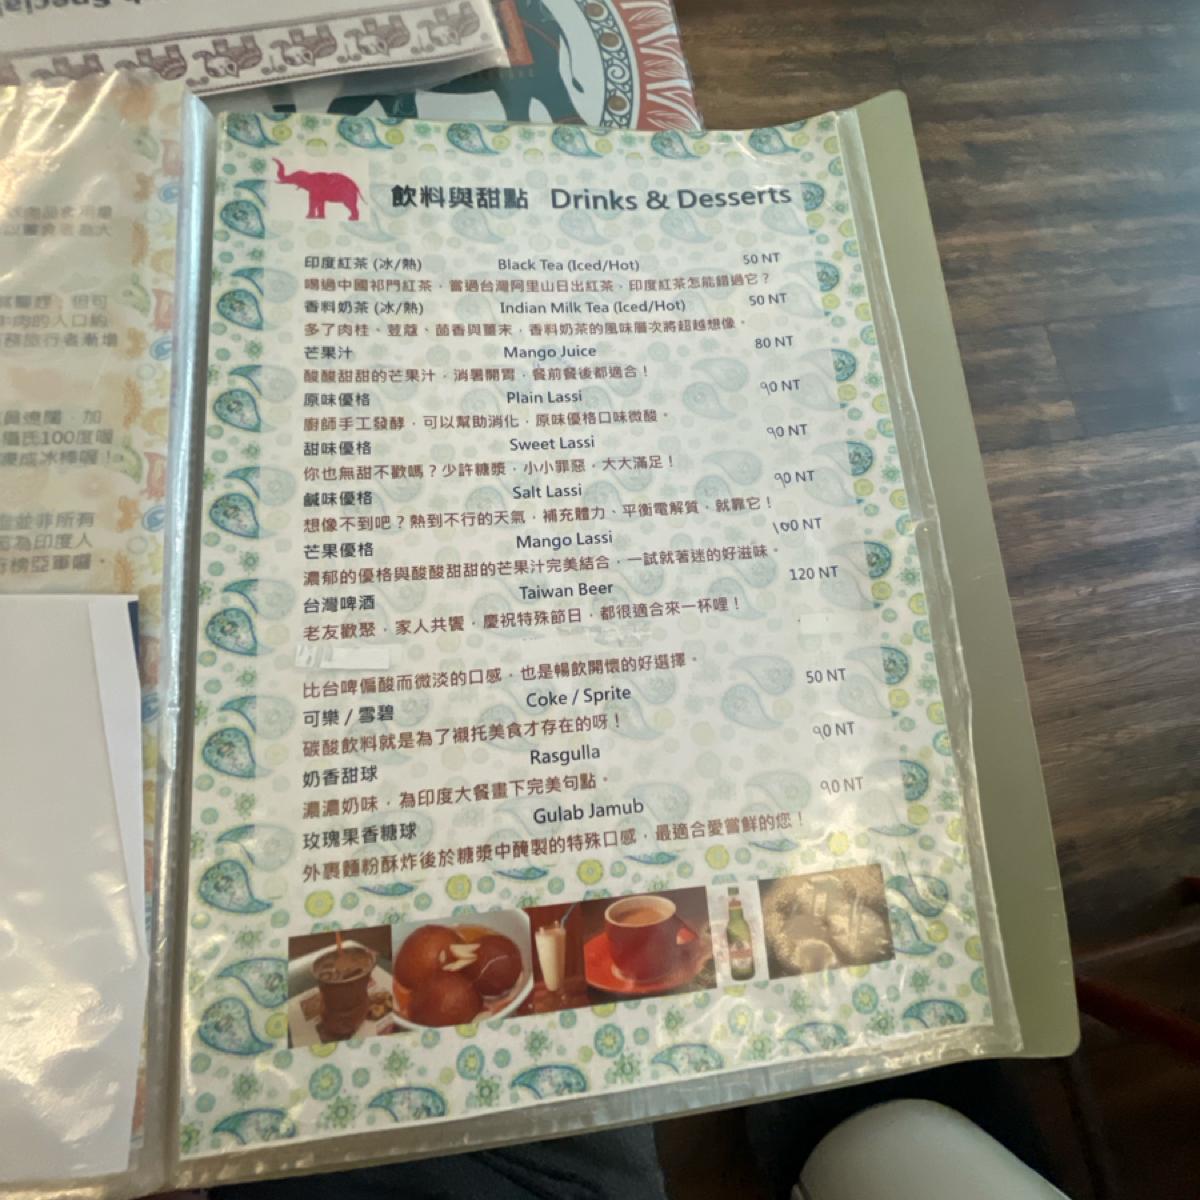 飲料與甜點 Drinks & Desserts
印度紅茶 (冰/熱) Black Tea (Iced/Hot) 50 NT
喝過中國祁門紅茶，嘗過台灣阿里山日出紅茶，印度紅茶怎能錯過它？
香料奶茶 (冰/熱) Indian Milk Tea (Iced/Hot) 50 NT
多了肉桂、荳蔻、茴香與薑末，香料奶茶的風味層次將超越想像。
芒果汁 Mango Juice 80 NT
酸酸甜甜的芒果汁，消暑開胃，餐前餐後都適合！
原味優格 Plain Lassi 90 NT
廚師手工發酵，可以幫助消化，原味優格口味微酸。
甜味優格 Sweet Lassi 90 NT
你也無甜不歡嗎？少許糖漿，小小罪惡，大大滿足！
鹹味優格 Salt Lassi 90 NT
想像不到吧？熱到不行的天氣，補充體力、平衡電解質，就靠它！
芒果優格 Mango Lassi 100 NT
濃郁的優格與酸酸甜甜的芒果汁完美結合，一試就著迷的好滋味。
台灣啤酒 Taiwan Beer 120 NT
老友歡聚，家人共饗，慶祝特殊節日，都很適合來一杯哩！
比台啤偏酸而微淡的口感，也是暢飲開懷的好選擇。
可樂 / 雪碧 Coke / Sprite 50 NT
碳酸飲料就是為了襯托美食才存在的呀！
奶香甜球 Rasgulla 90 NT
濃濃奶味，為印度大餐畫下完美句點。
玫瑰果香糖球 Gulab Jamub 90 NT
外裹麵粉酥炸後於糖漿中醃製的特殊口感，最適合愛嘗鮮的您！
但可
牛肉的入口納
務旅行者漸增
加
攝氏100度喔
凍成冰棒喔！
並非所有
因為印度人
行榜亞軍喔。